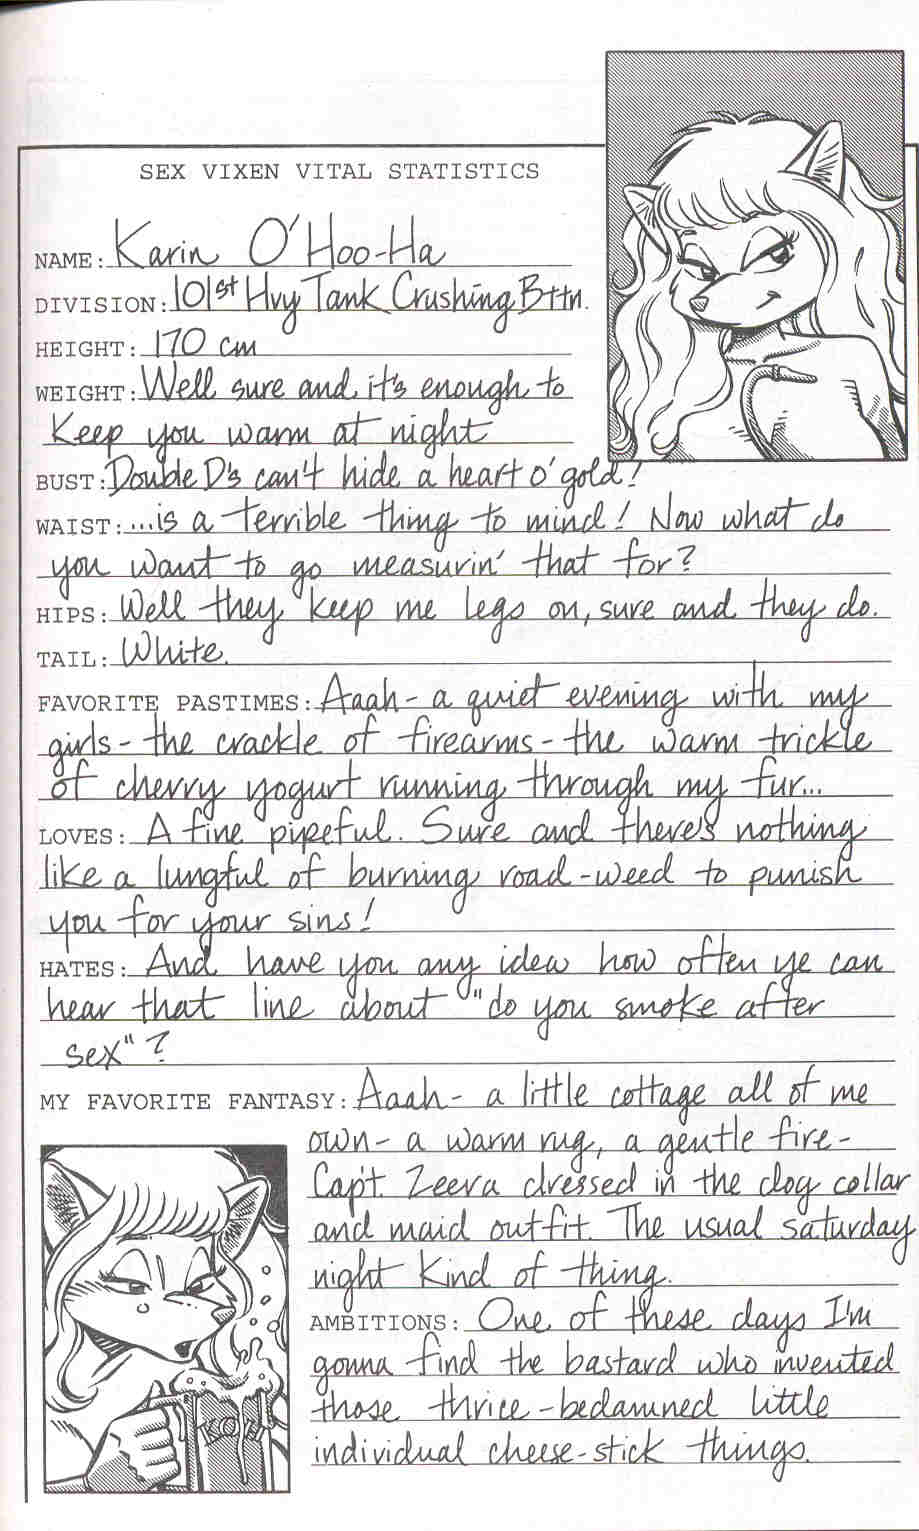 SEX VIXEN VITAL STATISTICS
NAME: Karin O'Hoo-Ha
DIVISION: 101st Hvy Tank Crushing Bttn.
HEIGHT: 170 cm
WEIGHT: Well sure and it's enough to
keep you warm at night
BUST: Double D's can't hide a heart o' gold!
WAIST: ...is a terrible thing to mind! Now what do
you want to go measurin' that for?
HIPS: Well they keep me legs on, sure and they do.
TAIL: White.
FAVORITE PASTIMES: Aaah- a quiet evening with my
girls- the crackle of firearms- the warm trickle
of cherry yogurt running through my fur...
LOVES: A fine pipeful. Sure and there's nothing
like a lungful of burning road-weed to punish
you for your sins!
HATES: And have you any idea how often ye can
hear that line about "do you smoke after
sex"?
MY FAVORITE FANTASY: Aaah- a little cottage all of me
own- a warm rug, a gentle fire-
Capt. Zeera dressed in the dog collar
and maid outfit. The usual saturday
night kind of thing.
AMBITIONS: One of these days I'm
gonna find the bastard who invented
those thrice-bedamned little
individual cheese-stick things.